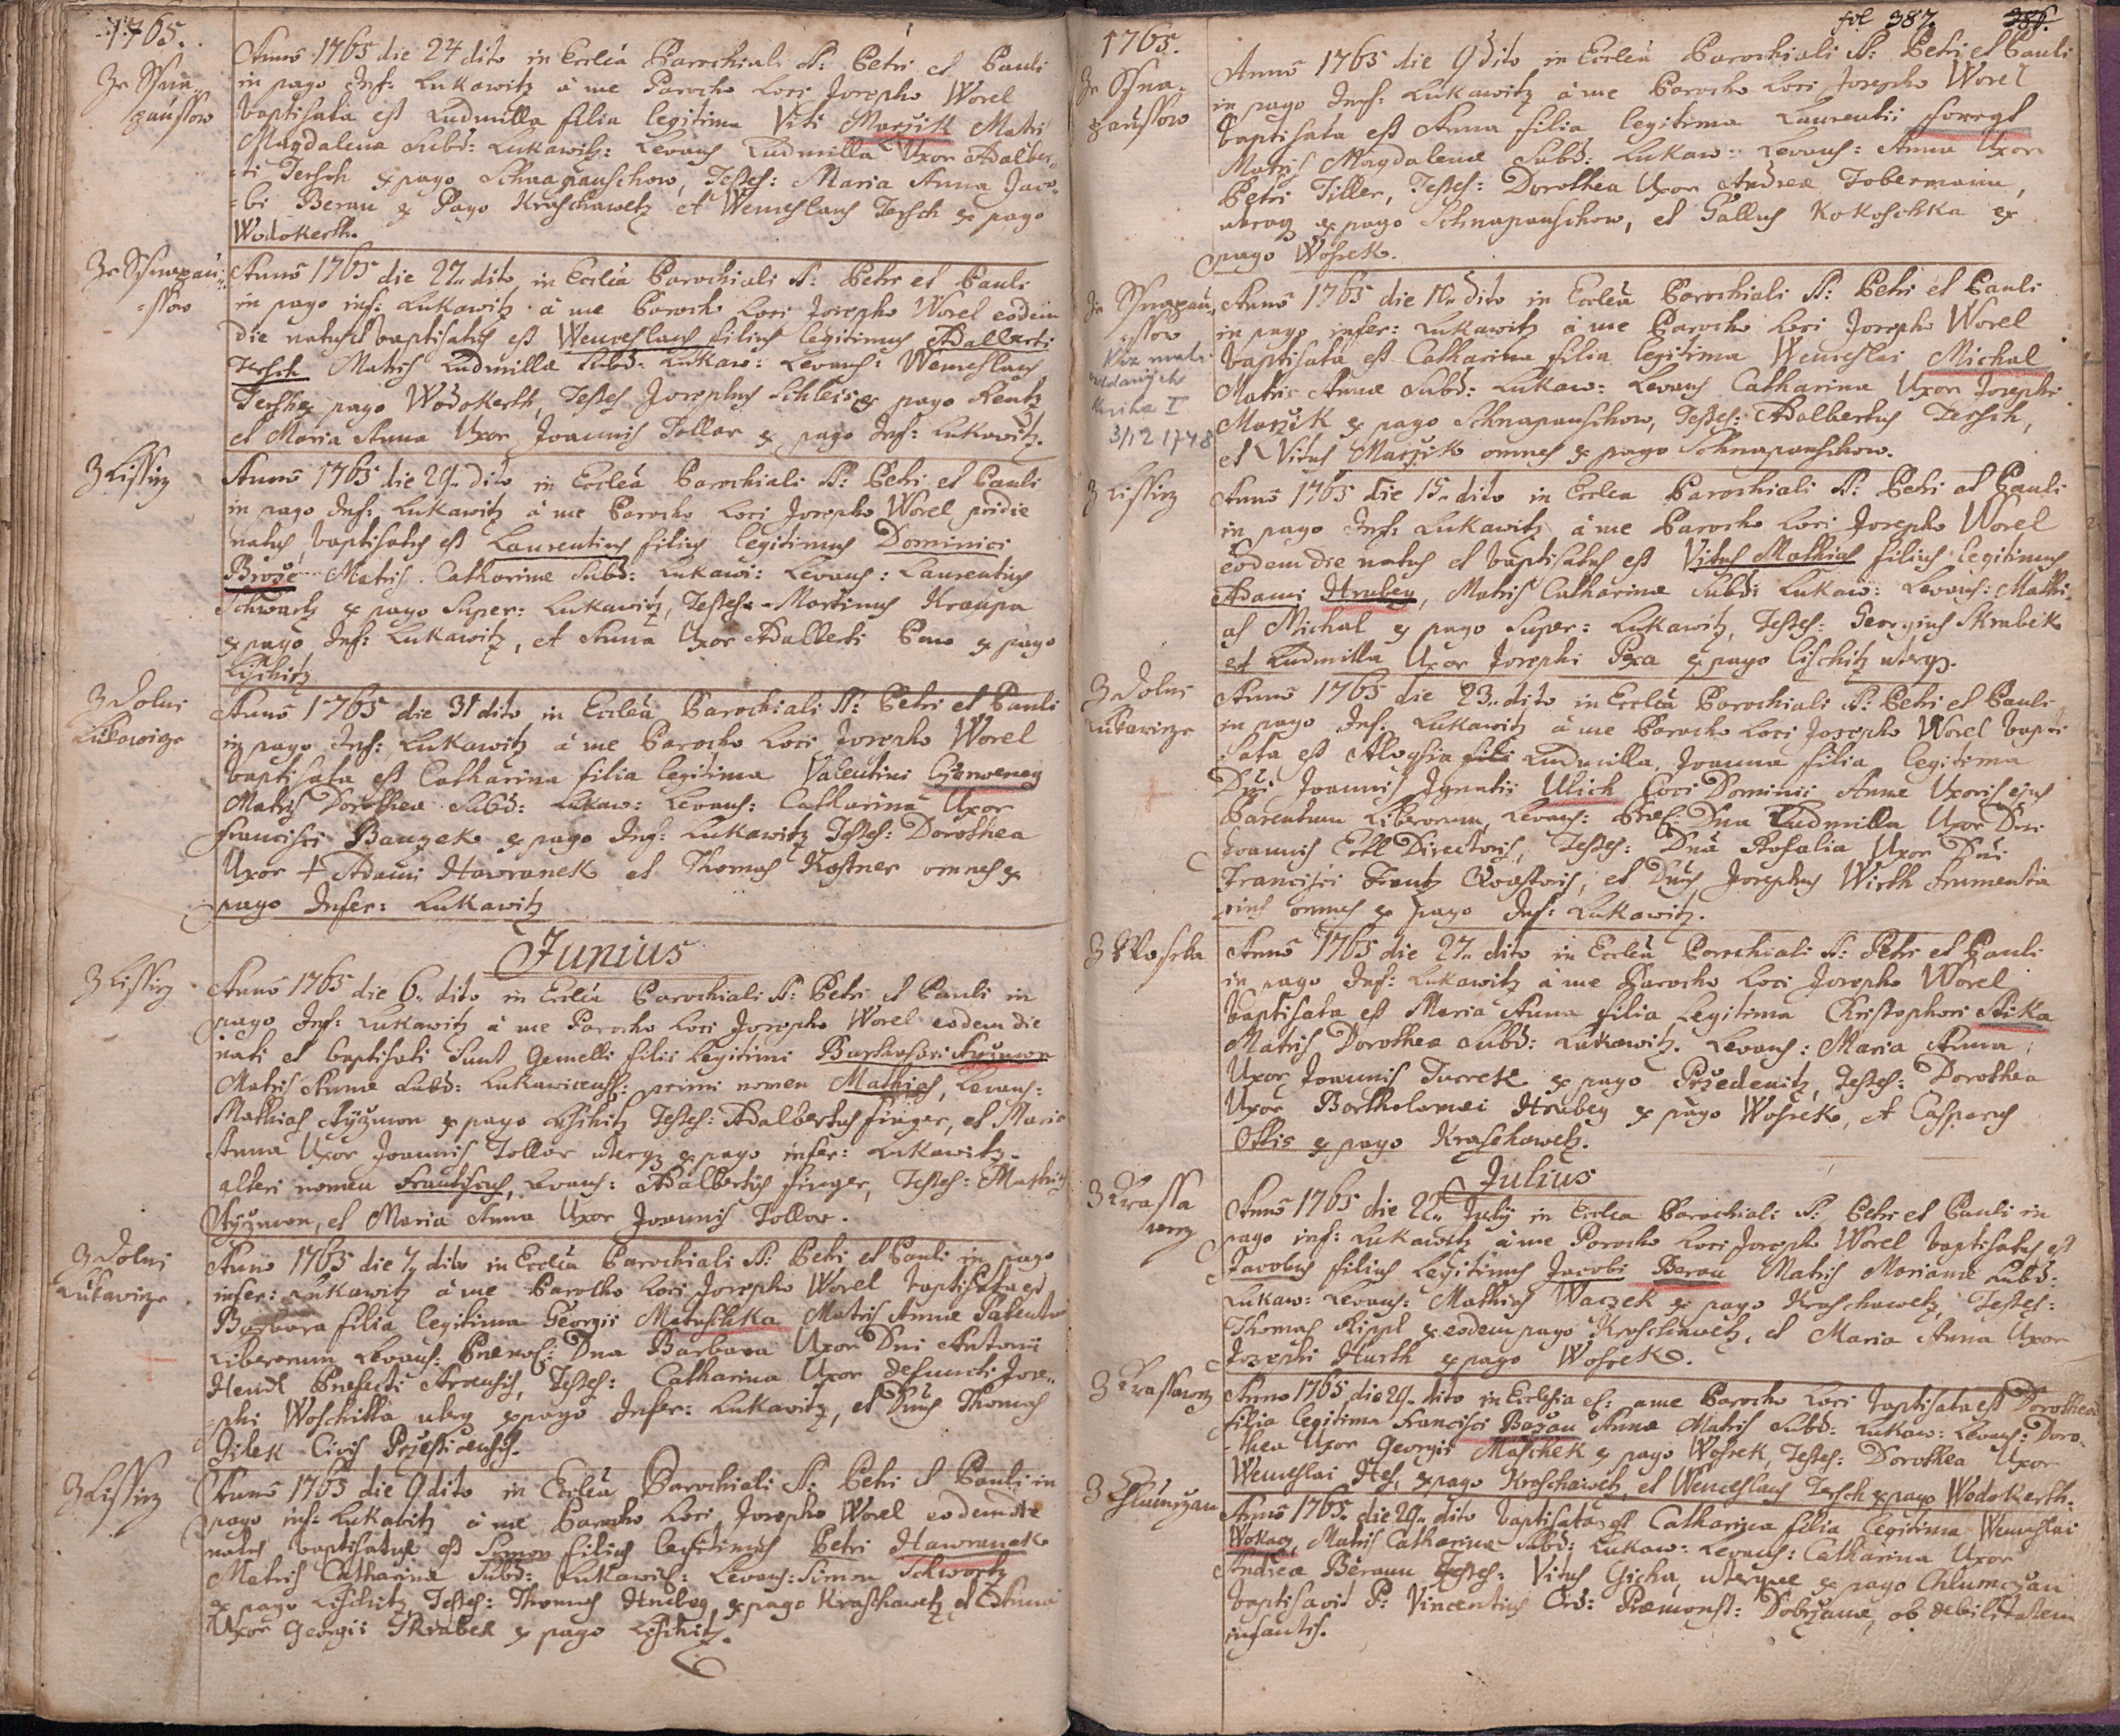 1765.
Ze Ssna-
paussow
Anno 1765 die 24 dito in Ecclia Parochiali St: Petri et Pauli
in pago Inf: Lukawitz à me Parocho Loci Josepho Worel
baptisata est Ludmilla filia legitima Viti Marzik Matris
Magdalena Subd: Lukawitz: Levans Ludmilla Uxor Adalber-
ti Tersch ex pago Schnapauschow, Testes: Maria Anna Jaco-
bi Beran ex Pago Kraschawetz et Wenceslaus Tersch ex pago
Wodokerth.
Ze Ssnapau-
ssow
Anno 1765 die 27. dito in Ecclia Parochiali St: Petri et Pauli
in pago inf: Lukawitz à me Parocho Loci Josepho Worel eodem
die natus et baptisatus est Wenceslaus filius legitimus Adalberti
Tersch Matris Ludmilla Subd: Lukaw: Levans: Wenceslaus
Tersch ex pago Wodokerth, Testes Josephus Schleis ex pago Rentz
et Maria Anna Uxor Joannis Tollar ex pago Inf: Lukawitz.
Z Lissicz
Anno 1765 die 29. dito in Ecclia Parochiali St: Petri et Pauli
in pago Inf: Lukawitz à me Parocho Loci Josepho Worel pridie
natus, baptisatus est Laurentius filius legitimus Dominici
Brože Matris Catharinæ Subd: Lukawi: Levans: Laurentius
Schwartz ex pago Super: Lukawitz, Testes Martinus Kraupa
ex pago Inf: Lukawitz, et Anna Uxor Adalberti Benc ex pago
Lischitz
Z Dolni
Lukawicze
Anno 1765 die 31 dito in Ecclia Parochiali St: Petri et Pauli
in pago Inf: Lukawitz à me Parocho Loci Josepho Worel
baptisata est Catharina filia legitima Valentini Czerweney
Matris Dorothea Subd: Lukaw: Levans: Catharina Uxor
Francisci Bauzek ex pago Inf: Lukawitz Testes: Dorothea
Uxor + Adami Hawranek et Thomas Kostner omnes ex
pago Infer: Lukawitz
Junius
Z Lissicz
Anno 1765 die 6. dito in Ecclia Parochiali St: Petri et Pauli in
pago Inf: Lukawitz à me Parocho Loci Josepho Worel eodem die
nati et baptisati sunt Gemelli filii legitimi Barthosoi Ayzmon
Matris Annæ Subd: Lukawicens: primi nomen Mathias, Levans:
Mathias Ayzmon ex pago Lischitz Testes: Adalbertus Finger, et Maria
Anna Uxor Joannis Tollar uterq ex pago infer: Lukawitz.
alteri nomen Frantiscus, Levans: Adalbertus Finger, Testes: Mathias
Ayzmon, et Maria Anna Uxor Joannis Tollar.
Z Dolni
Lukawicze
Anno 1765 die 7. dito in Ecclia Parochiali St: Petri et Pauli in pago
infer: Lukawitz à me Parocho Loci Josepho Worel baptisata est
Barbara filia legitima Georgii Matuschka Matris Annæ Parentu
Liberorum Levans: Prænob: Dna Barbara Uxor Dni Antonii
Hendl Præfecti Arcensis, Testes: Catharina Uxor defuncti Jose-
phi Woschitka uterq ex pago Infer: Lukawitz, et Dnus Thomas
Gilek Civis Przesticensis.
Z Lissicz
Anno 1765 die 9 dito in Ecclia Parochiali St: Petri et Pauli in
pago inf: Lukawitz à me Parocho Loci Josepho Worel eodem die
natus baptisatus est Simon filius legitimus Petri Hawranek
Matris Catharinæ Subd: Lukawic: Levans: Simon Schwartz
ex pago Lischitz, Testes: Thomas Hrubey ex pago Kraschawetz et Anna
Uxor Georgii Skrabek ex pago Lischitz.
fol 387. 386.
1765.
Ze Ssna-
paussow
Anno 1765 die 9 dito in Ecclia Parochiali St: Petri et Pauli
in pago Inf: Lukawitz à me Parocho Loci Josepho Worel
baptisata est Anna filia legitima Laurentii Forregt
Matris Magdalenæ Subd: Lukaw: Levans: Anna Uxor
Petri Tiller, Testes: Dorothea Uxor Andreæ Tobermann,
uterq ex pago Schnapauschow, et Gallus Kokoschka ex
pago Wossek.
Ze Ssnapau-
ssow
3/12 1748
Anno 1765 die 10. dito in Ecclia Parochiali St: Petri et Pauli
in pago infer: Lukawitz à me Parocho Loci Josepho Worel
baptisata est Catharina filia legitima Wenceslai Michal
Matris Annæ Subd: Lukaw: Levans Catharina Uxor Josephi
Marzik ex pago Schnapauschow, Testes: Adalbertus Tersch,
et Vitus Marzik omnes ex pago Schnapauschow.
Z Lissicz
Anno 1765 die 15. dito in Ecclia Parochiali St: Petri et Pauli
in pago Inf: Lukawitz à me Parocho Loci Josepho Worel
eodem die natus et baptisatus est Vitus Mathias filius legitimus
Adami Hrubey, Matris Catharinæ Subd: Lukaw: Levans: Mathi-
as Michal ex pago Super: Lukawitz, Testes: Georgius Skrabek
et Ludmilla Uxor Josephi Pexa ex pago Lischitz uterq.
Z Dolni
Lukawicze
Anno 1765 die 23. dito in Ecclia Parochiali St: Petri et Pauli
in pago Inf: Lukawitz à me Parocho Loci Josepho Worel bapti-
sata est Aloysia fili Ludmilla, Joanna filia legitima
Dni Joannis Ignatii Ulich Loci Dominii Annæ Uxoris ejus
Parentum Liberorum, Levans: Prænob: Dna Ludmilla Uxor Dni
Joannis Ertl Directoris, Testes: Dna Rosalia Uxor Dni
Francisci Frantz Quæstoris, et Dnus Josephus Wirth frumenta-
rius omnes ex pago Inf: Lukawitz.
Z Woseka
Anno 1765 die 27. dito in Ecclia Parochiali St: Petri et Pauli
in pago Inf: Lukawitz à me Parocho Loci Josepho Worel
baptisata est Maria Anna filia Legitima Christophori Stika
Matris Dorothea Subd: Lukawitz. Levans: Maria Anna
Uxor Joannis Turrek ex pago Przedenitz, Testes: Dorothea
Uxor Bartholomæi Hrubey ex pago Wossek, et Casparus
Ottis ex pago Kraschawetz.
Julius
Z Krassa
wcz
Anno 1765 die 22. July in Ecclia Parochiali St: Petri et Pauli in
pago inf: Lukawitz à me Parocho Loci Josepho Worel baptisatus est
Jacobus filius legitimus Jacobi Beran Matris Marianæ Subd:
Lukaw: Levans: Mathias Waczek ex pago Kraschawetz, Testes:
Thomas Rippl ex eodem pago Kraschawetz, et Maria Anna Uxor
Josephi Hurth ex pago Wossek.
Z Krassawcz
Anno 1765 die 29. dito in Ecclesia et: a me Parocho Loci baptisata est Dorothea
filia legitima Francisci Bozau Annæ Matris Subd: Lukaw: Levans: Doro-
thea Uxor Georgii Maschek ex pago Wossek, Testes: Dorothea Uxor
Wenceslai Hes, ex pago Kraschawetz, et Wenceslaus Tersch ex pago Wodokerth.
Z Chlumczan
Anno 1765. die 29. dito baptisata est Catharina filia legitima Wenceslai
Wokacz, Matris Catharinæ Subd: Lukaw: Levans: Catharina Uxor
Andreæ Beraun Testes: Vitus Gicha, uterque ex pago Chlumczan
baptisavit P: Vincentius Ord: Præmonst: Dobrzanæ, ob debilitatem
infantis.